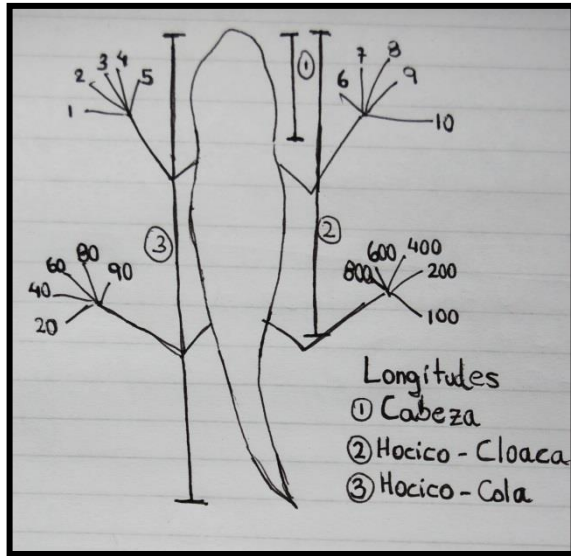 1
2
3
4
5
6
7
8
9
10
①
②
③
20
40
60
80
90
800
600
400
200
100
Longitudes
① Cabeza
② Hocico - Cloaca
③ Hocico - Cola